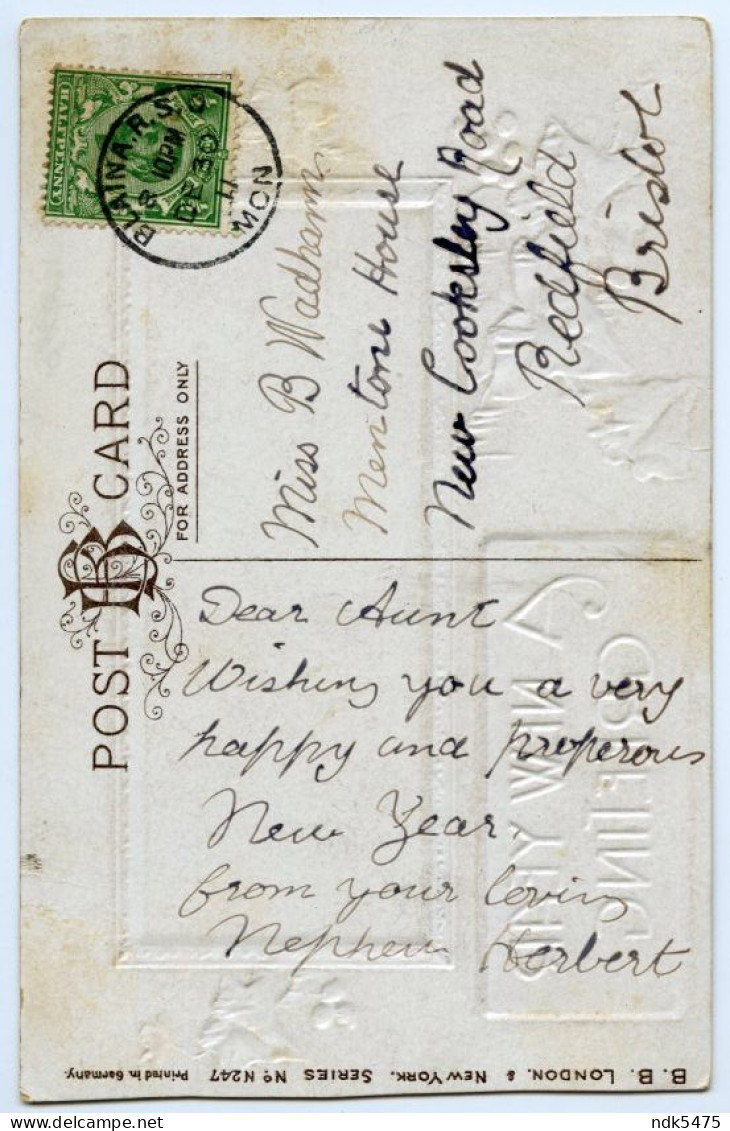 POST CARD
FOR ADDRESS ONLY
HALFPENNY
BLAINA. R.S.O
8 10PM
DE 30
11
MON
Miss B Wadham
Mentone House
New Cooksley Road
Redfield
Bristol
Dear Aunt
Wishing you a very
happy and properous
New Year,
from your loving
Nephew Herbert
B. B. LONDON. & NEW YORK. SERIES No N247 Printed in Germany.
ndk5475